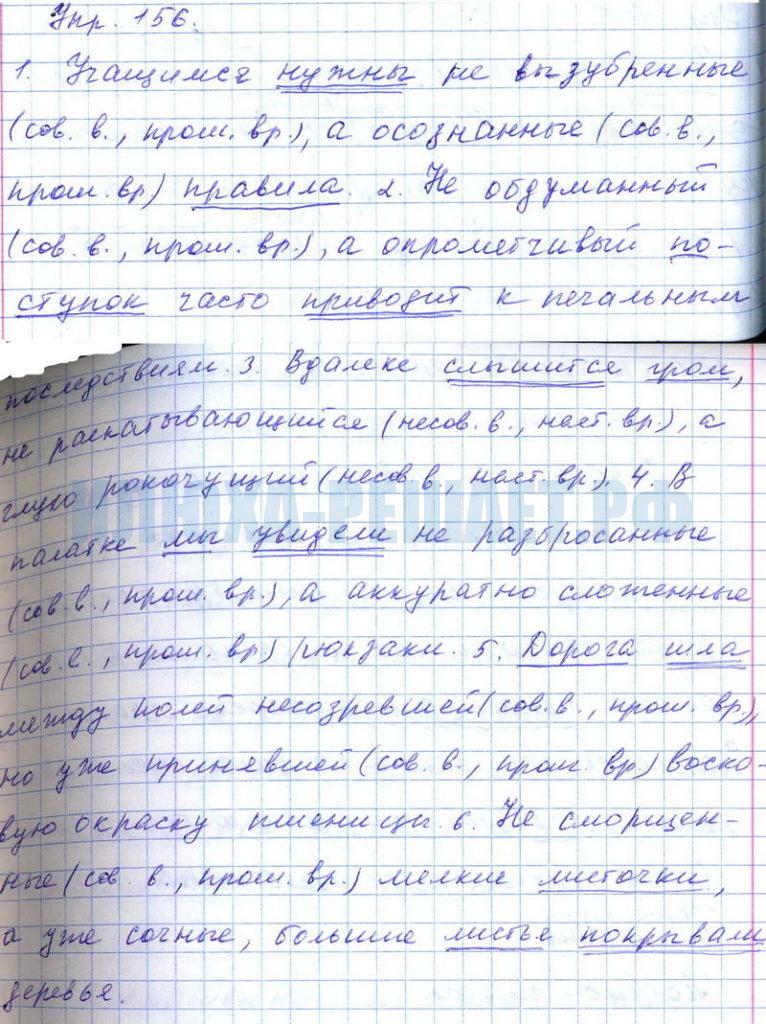 Упр. 156.
1. Учащимся нужны не вызубренные
(сов. в., прош. вр.), а осознанные (сов. в.,
прош. вр) правила. 2. Не обдуманный
(сов. в., прош. вр.), а опрометчивый по-
ступок часто приводит к печальным
последствиям. 3. Вдалеке слышится гром,
не раскатывающийся (несов. в., наст. вр.), а
глухо рокочущий (несов. в., наст. вр.). 4. В
ЮЛЮХА-РЕШАЕТ.РФ
палатке мы увидели не разбросанные
(сов. в., прош. вр.), а аккуратно сложенные
(сов. в., прош. вр) рюкзаки. 5. Дорога шла
между полей несозревшей (сов. в., прош. вр),
но уже принявшей (сов. в., прош. вр.) воско-
вую окраску пшеницы. 6. Не сморщен-
ные (сов. в., прош. вр.) мелкие листочки,
а уже сочные, большие листья покрывали
деревья.